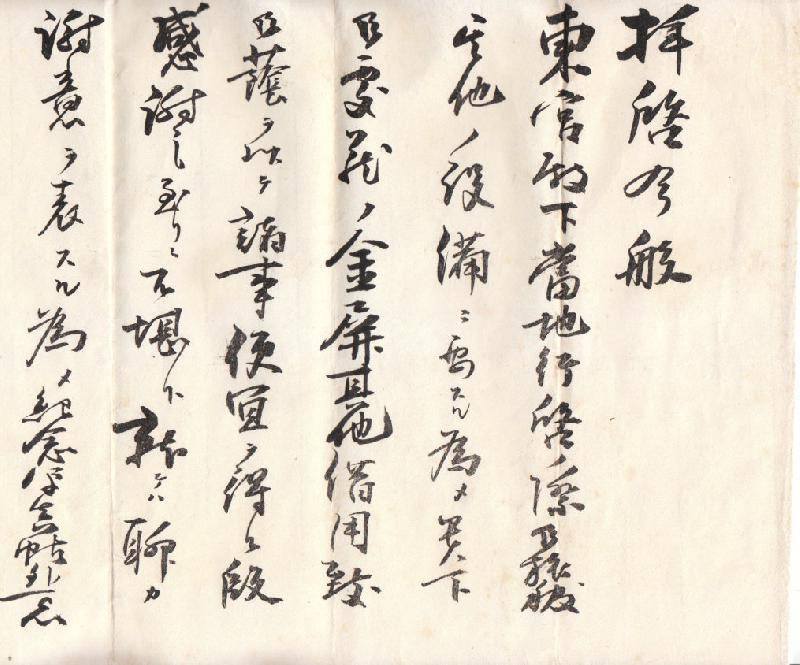 拝啓今般
東宮殿下當地行啓ノ際御旅館
其他ノ設備ニ充スル為メ貴下
御愛蔵ノ金屏其他借用致
御蔭ヲ以テ諸事便宜ヲ得候段
感謝之至リニ不堪候就テハ聊カ
謝意ヲ表スル為メ紀念写真帖外一点